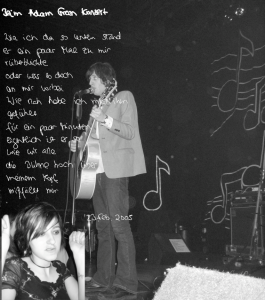 Beim Adam Green Konzert
Wie ich da so unten stand
er ein paar Mal zu mir
rüberblickte
oder was es doch
an mir vorbei
Wie nah habe ich mich ihm
gefühlt
für ein paar Minuten
Eigentlich ist er so
wie wir alle
die Bühne hoch über
meinem Kopf
mißfällt mir
23. Feb. 2005